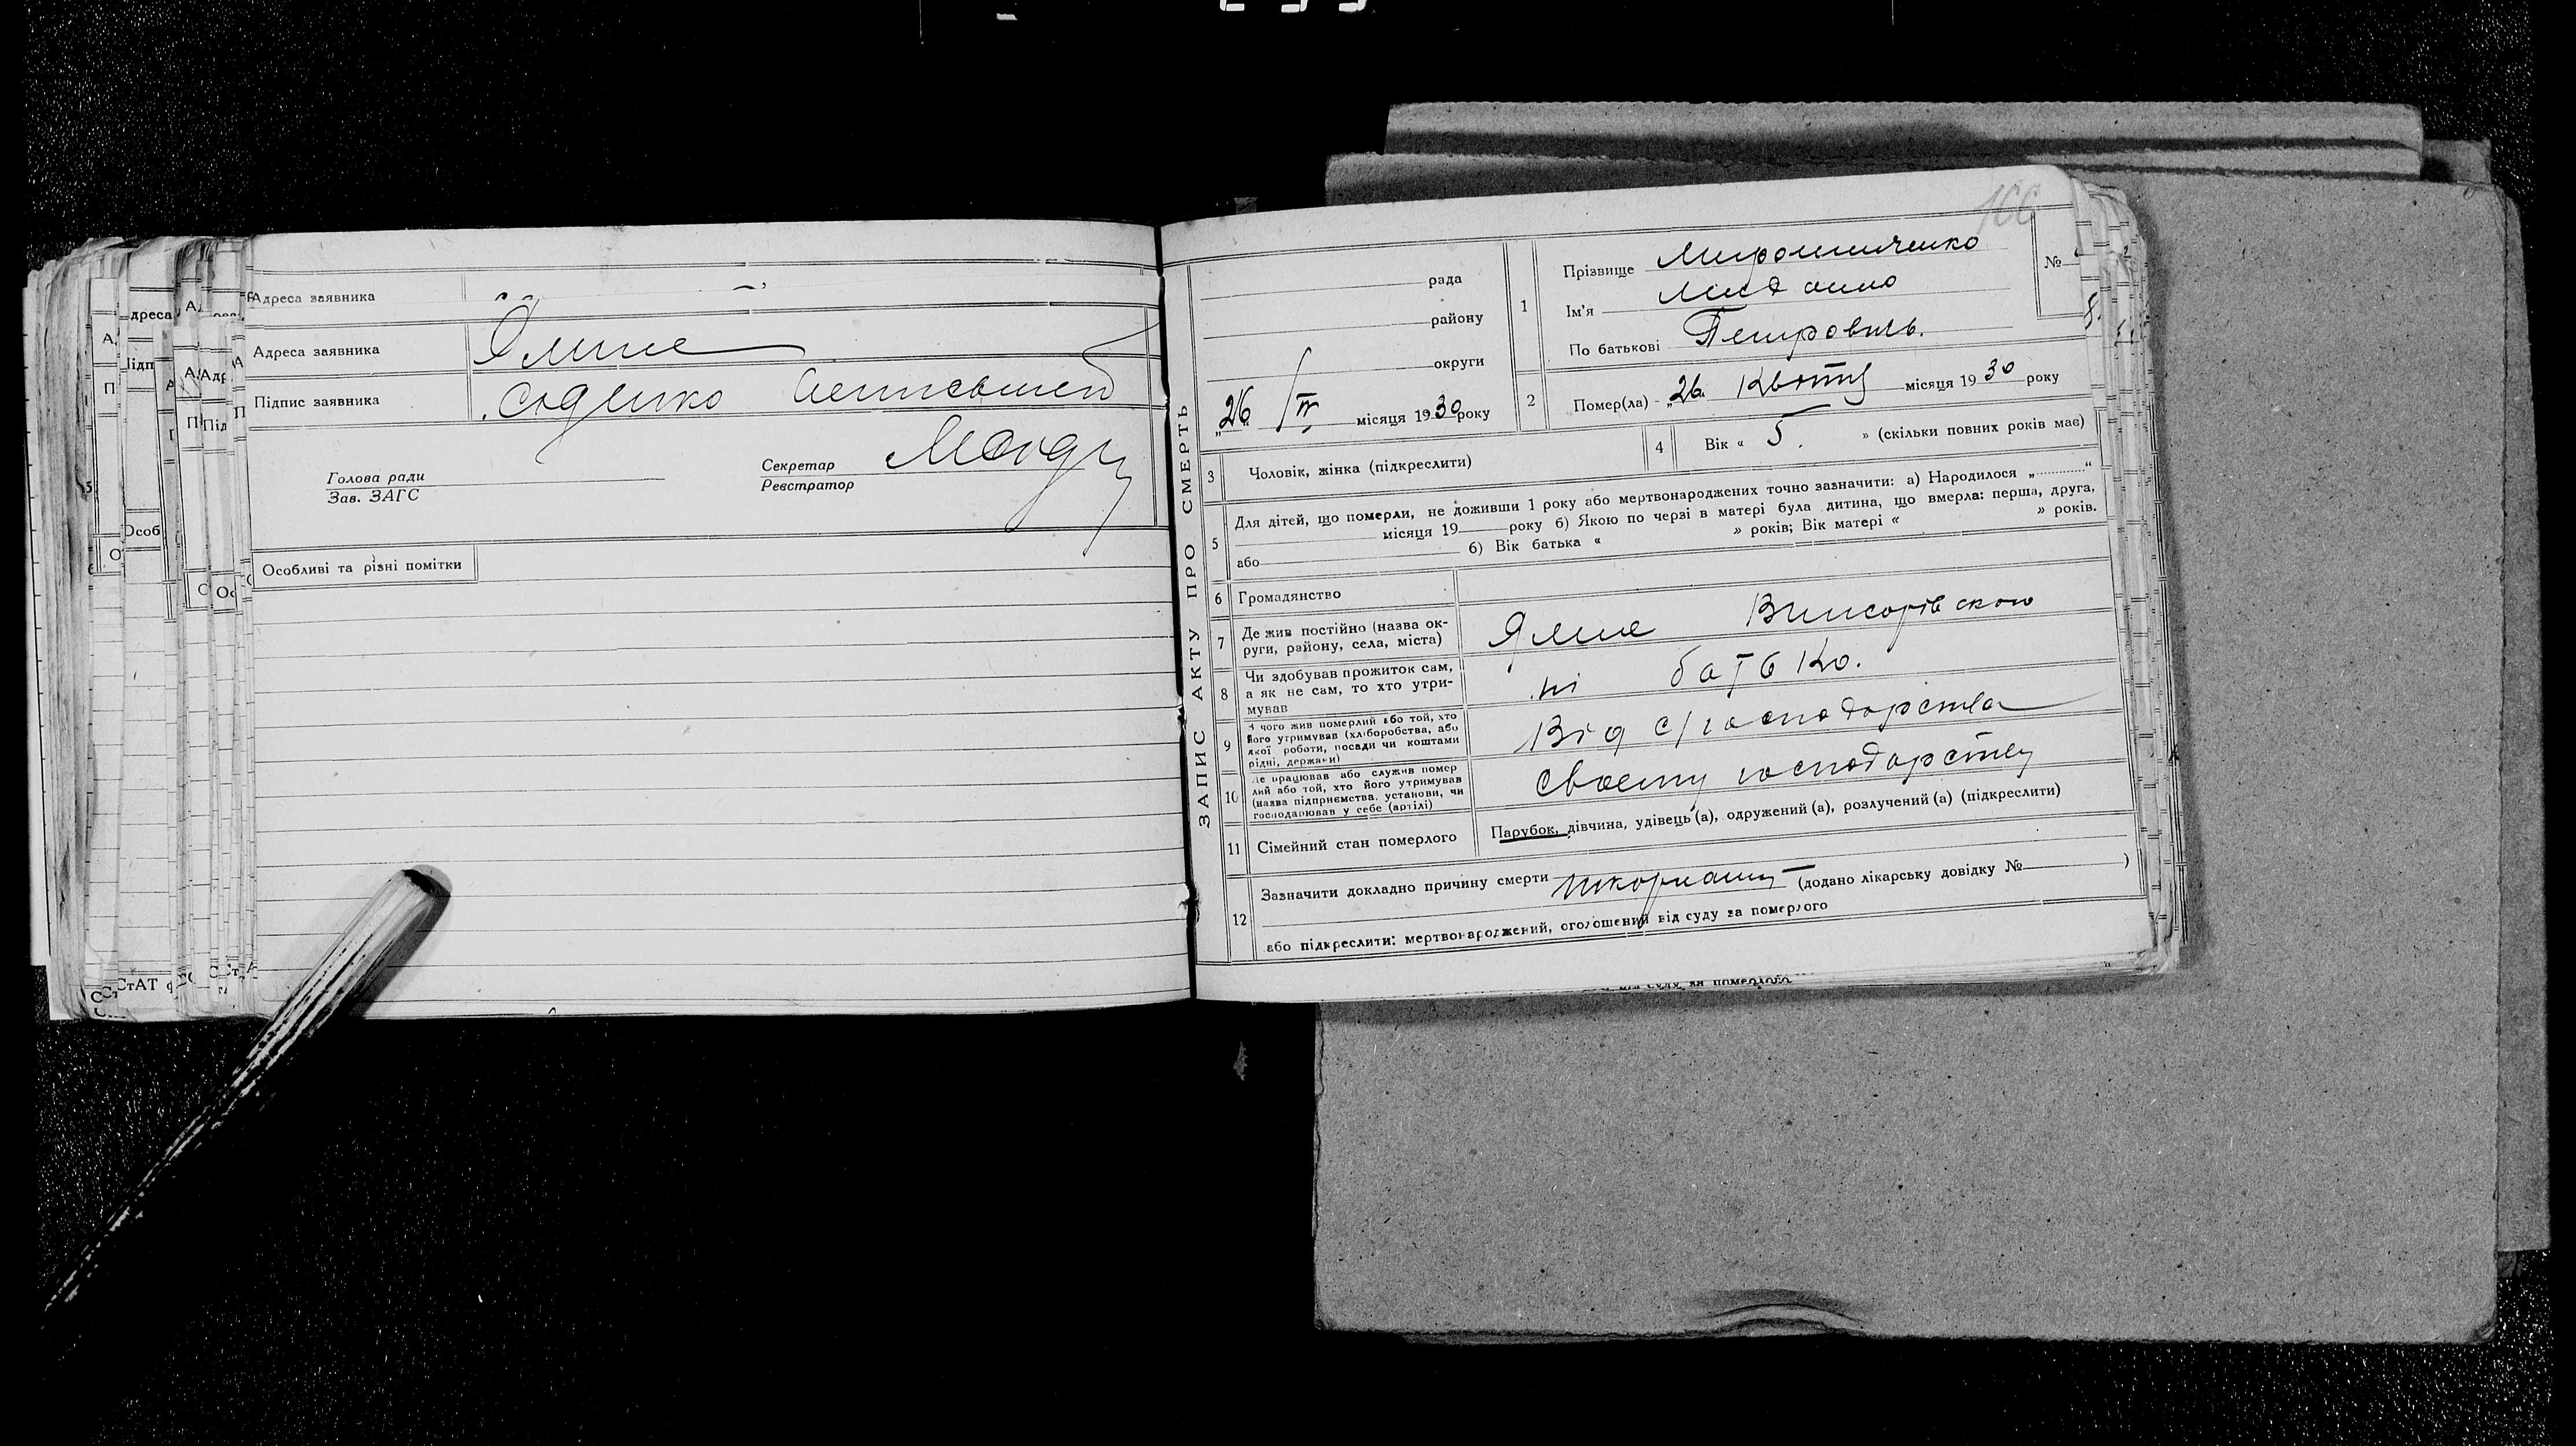 Адреса заявника
Адреса заявника
Підпис заявника
Голова ради
Зав. ЗАГС
Секретар
Реєстратор
Особливі та різні помітки
ЗАПИС АКТУ ПРО СМЕРТЬ
рада
району
округи
„26“ IV місяця 1930 року
1
Прізвище Мирошниченко
Ім'я
По батькові Петровичь.
№
2
Помер(ла) „26“ місяця 1930 року
3
Чоловік, жінка (підкреслити)
4
Вік « 5. » (скільки повних років має)
5
Для дітей, що померли, не доживши 1 року або мертвонароджених точно зазначити: а) Народилося „............“
місяця 19 року б) Якою по черзі в матері була дитина, що вмерла: перша, друга,
або б) Вік батька « » років; Вік матері « » років.
6
Громадянство
7
Де жив постійно (назва ок-
руги, району, села, міста)
8
Чи здобував прожиток сам,
а як не сам, то хто утри-
мував
ні батько.
9
З чого жив померлий або той, хто
його утримував (хліборобства, або
якої роботи, посади чи коштами
рідні, держави)
Від с/господарства
10
Де працював або служив помер
лий або той, хто його утримував
(назва підприємства, установи, чи
господарював у себе (артілі)
своему господарству
11
Сімейний стан померлого
Парубок, дівчина, удівець (а), одружений (а), розлучений (а) (підкреслити)
12
Зазначити докладно причину смерти (додано лікарську довідку № )
або підкреслити: мертвонароджений, оголошений від суду за померлого